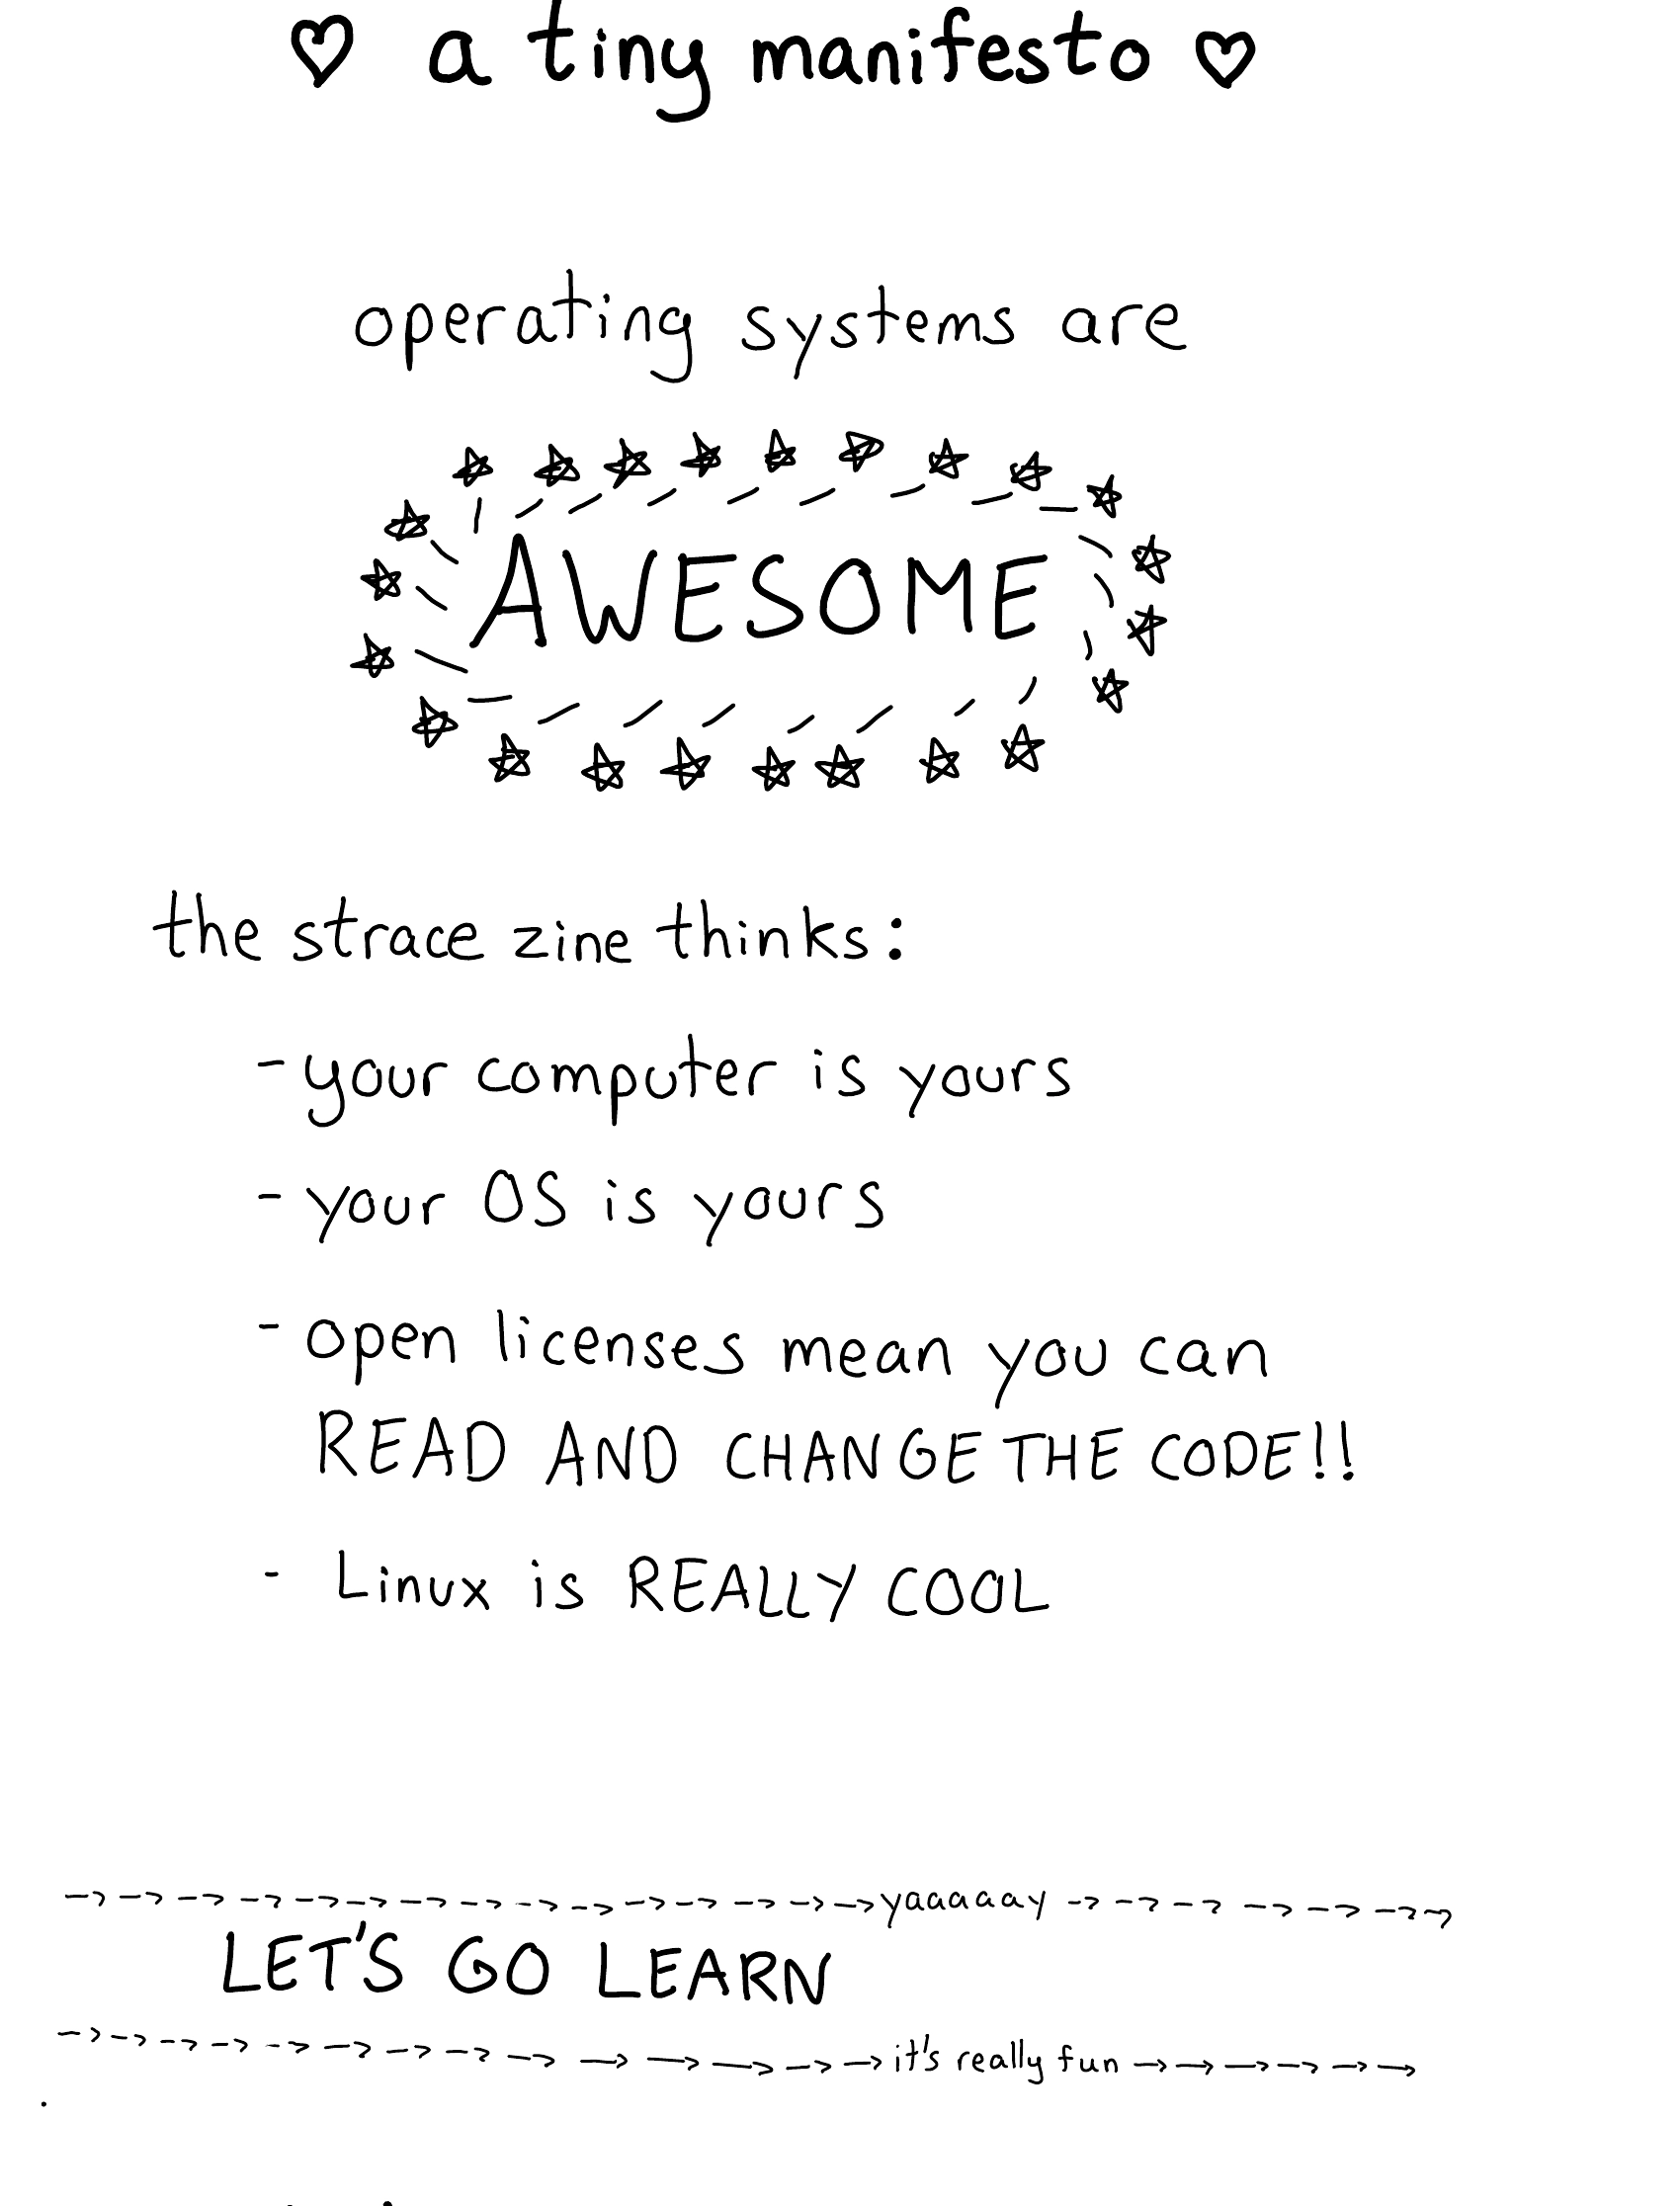 ♡ a tiny manifesto ♡
operating systems are
AWESOME
the strace zine thinks:
- your computer is yours
- your OS is yours
- open licenses mean you can
READ AND CHANGE THE CODE!!
- Linux is REALLY COOL
yaaaaay
LET'S GO LEARN
it's really fun